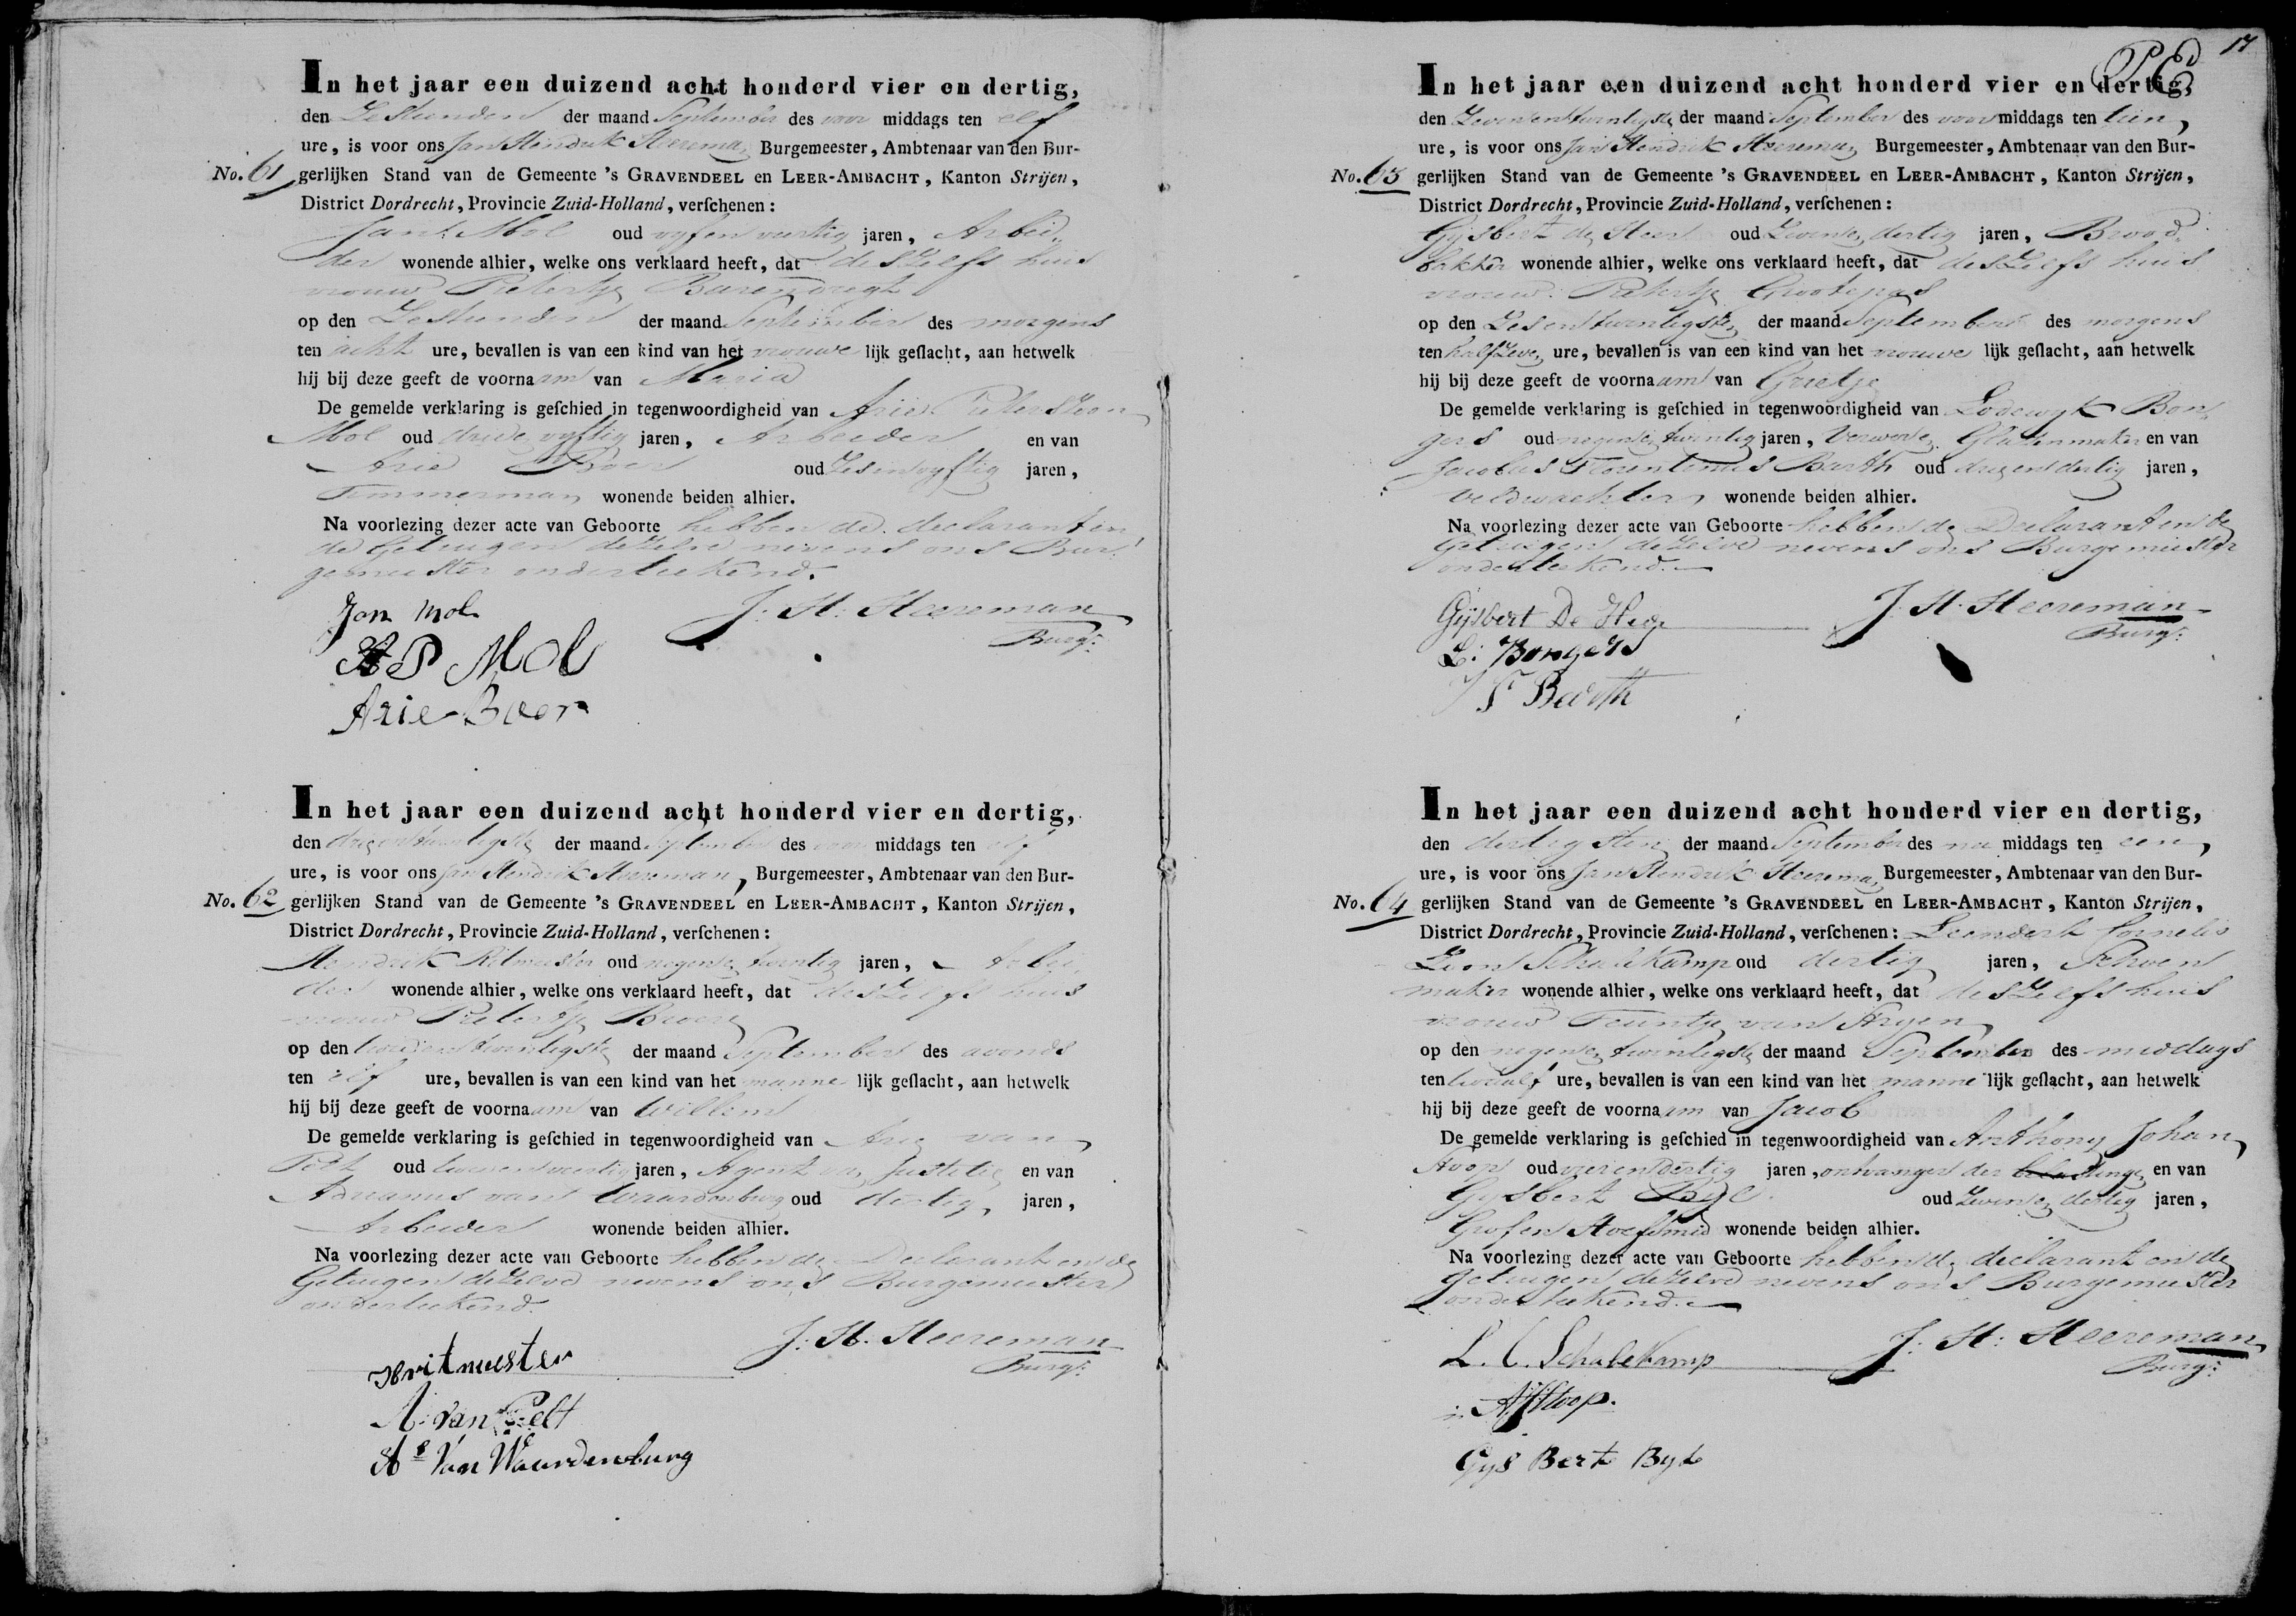 In het jaar een duizend acht honderd vier en dertig,
den Zestienden der maand September des voor middags ten elf
ure, is voor ons Jan Hendrik Heereman, Burgemeester, Ambtenaar van den Bur-
No. 61 gerlijken Stand van de Gemeente 's GRAVENDEEL en LEER-AMBACHT, Kanton Strijen,
District Dordrecht, Provincie Zuid-Holland, verschenen:
Jan Mol oud vyfenveertig jaren, Arbei-
der wonende alhier, welke ons verklaard heeft, dat deszelfs huis
vrouw Pietertje Barendregt
op den Zestienden der maand September des morgens
ten acht ure, bevallen is van een kind van het vrouwe lijk geslacht, aan hetwelk
hij bij deze geeft de voornaam van Maria
De gemelde verklaring is geschied in tegenwoordigheid van Arie Pieterszoon
Mol oud drieenvyftig jaren, Arbeider en van
Arie Boer oud Zesenvyftig jaren,
Timmerman, wonende beiden alhier.
Na voorlezing dezer acte van Geboorte hebben de declarant en
de Getuigen dezelve nevens ons Bur-
gemeester onderteekend.
Jan Mol J: H: Heereman
Burgr:
AP Mol
Arie Boer
In het jaar een duizend acht honderd vier en dertig,
den drieentwintigste der maand September des voor middags ten elf
ure, is voor ons Jan Hendrik Heereman, Burgemeester, Ambtenaar van den Bur-
No. 62 gerlijken Stand van de Gemeente 's GRAVENDEEL en LEER-AMBACHT, Kanton Strijen,
District Dordrecht, Provincie Zuid-Holland, verschenen:
Hendrik Ritmeester oud negenen twintig jaren, Arbei
der wonende alhier, welke ons verklaard heeft, dat deszelfs huis
vrouw Pietertje
op den tweeentwintigste der maand September des avonds
ten elf ure, bevallen is van een kind van het manne lijk geslacht, aan hetwelk
hij bij deze geeft de voornaam van Willem
De gemelde verklaring is geschied in tegenwoordigheid van Arie van
Pelt oud tweeenveertig jaren, Agent van Justitie en van
Adrianus van Waardenburg oud dertig jaren,
Arbeider wonende beiden alhier.
Na voorlezing dezer acte van Geboorte hebben de Declarant en de
Getuigen dezelve nevens ons Burgemeester
onderteekend.
HRitmeester J: H. Heereman
Burgr:
A: van Pelt
As Van Waardenburg
17
In het jaar een duizend acht honderd vier en dertig,
den Zevenentwintigste der maand September des voor middags ten tien,
ure, is voor ons Jan Hendrik Heereman, Burgemeester, Ambtenaar van den Bur-
No. 63 gerlijken Stand van de Gemeente 's GRAVENDEEL en LEER-AMBACHT, Kanton Strijen,
District Dordrecht, Provincie Zuid-Holland, verschenen:
Gysbert de Heer oud Zevenen dertig jaren, Brood-
bakker wonende alhier, welke ons verklaard heeft, dat deszelfs huis
vrouw Pietertje Grootepas
op den Zesentwintigste der maand September des morgens
ten half Zeven ure, bevallen is van een kind van het vrouwe lijk geslacht, aan hetwelk
hij bij deze geeft de voornaam van Grietje
De gemelde verklaring is geschied in tegenwoordigheid van Lodewyk Bon-
gers oud negenen twintig jaren, Verwer en Glazenmaker en van
Jacobus Florentinus Barth oud drieendertig jaren,
Veldwachter, wonende beiden alhier.
Na voorlezing dezer acte van Geboorte hebben de Declarant en de
Getuigen dezelve nevens ons Burgemeester
onderteekend.
Gijsbert De Heer J. H. Heereman
Burgr:
L: Bongers
J F Barth
In het jaar een duizend acht honderd vier en dertig,
den dertigsten der maand September des na middags ten een,
ure, is voor ons Jan Hendrik Heereman, Burgemeester, Ambtenaar van den Bur-
No. 64 gerlijken Stand van de Gemeente 's GRAVENDEEL en LEER-AMBACHT, Kanton Strijen,
District Dordrecht, Provincie Zuid-Holland, verschenen: Leendert Cornelis
Zoon Schalekamp oud dertig jaren, Schoen
maker wonende alhier, welke ons verklaard heeft, dat deszelfs huis
vrouw Teuntje van
op den negenen twintigste der maand September des middags
ten twaalf ure, bevallen is van een kind van het manne lijk geslacht, aan hetwelk
hij bij deze geeft de voornaam van Jacob
De gemelde verklaring is geschied in tegenwoordigheid van Anthony Johan
Stoop oud vierendertig jaren, ontvanger der belastinge en van
Gysbert Byl oud Zevenen dertig jaren,
Grofen Hoefsmid wonende beiden alhier.
Na voorlezing dezer acte van Geboorte hebben de declarant en de
Getuigen dezelve nevens ons Burgemeester
onderteekend.
L. C. Schalekamp J: H: Heereman
Burgr:
AJStoop.
Gys Bert Byl